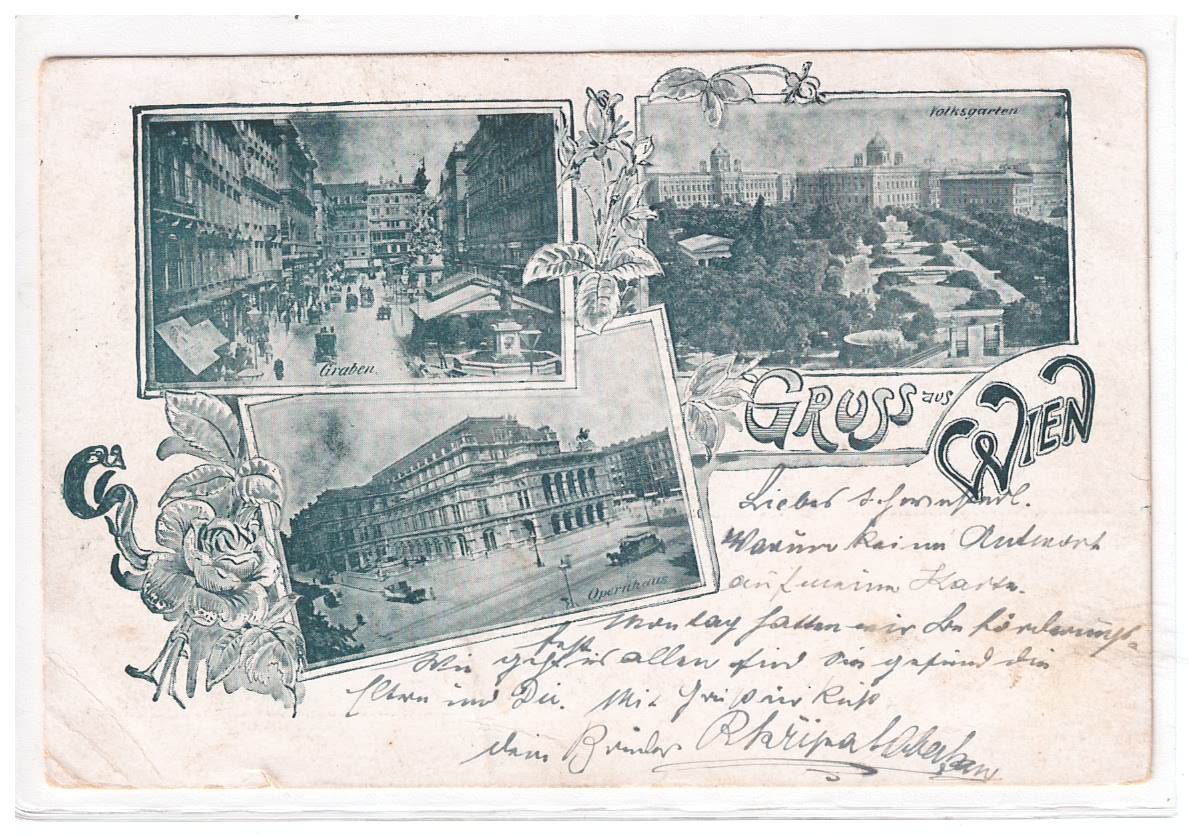 Volksgarten
Graben.
GRUSS aus WIEN
Opernhaus
Liebes
Warum keine Antwort
auf meine Karte.
Montag hatten wir Beförderungs-
fest
Wie geht es allen sind Sie gesund die
Eltern und Du. Mit Gruß und Kuß
dein Bruder